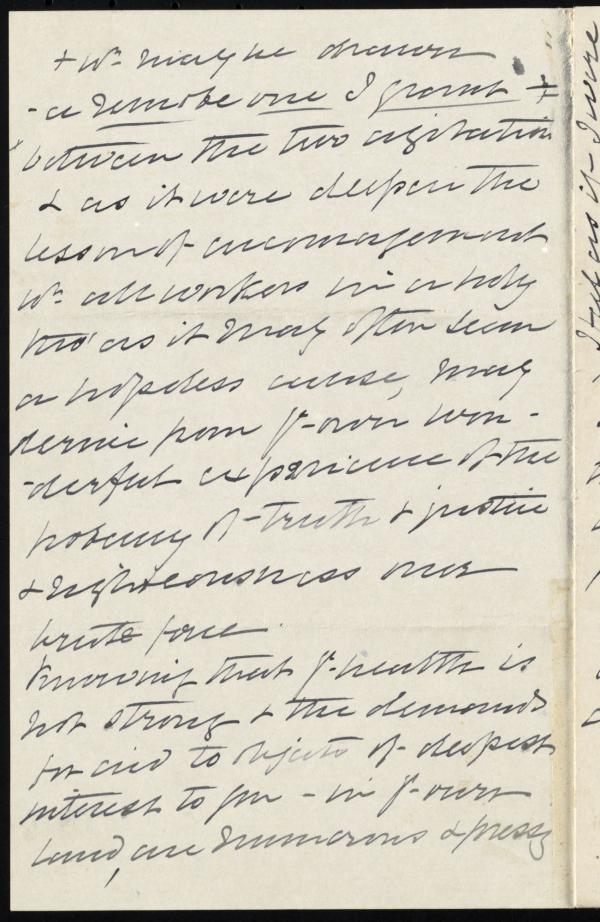 + wh may be drawn
- a remote one I grant +
between the two agitation
& as it were deepen the
lesson of encouragement
wh all workers in a holy
tho' as it may often seem
a hopeless cause, may
derive from yr own won-
-derful experience of the
potency of truth & justice
& righteousness over
brute force.
Knowing that yr health is
not strong & the demands
for aid to objects of deepest
interest to you - in yr own
land, are numerous & press
I felt as if I were